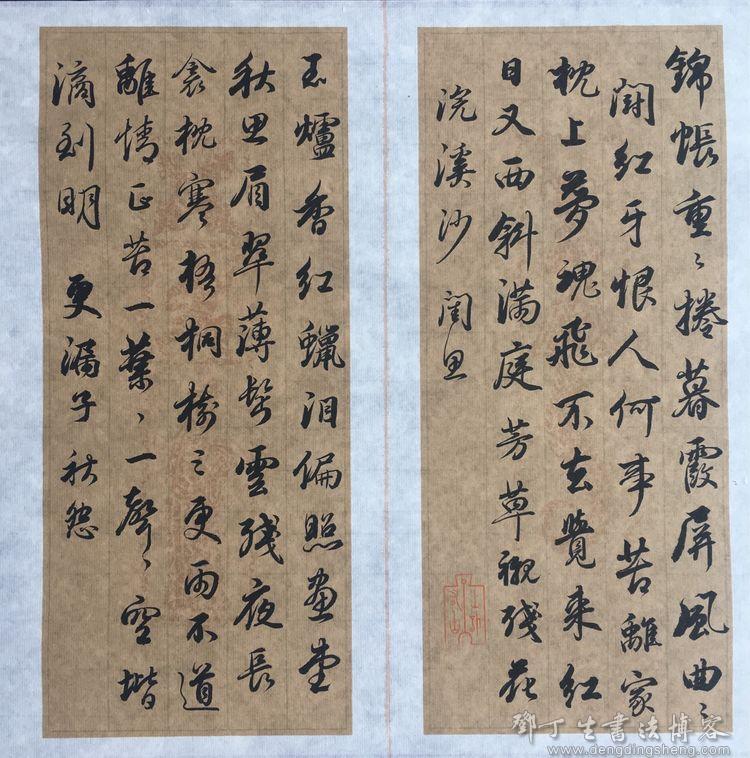 錦帳重〻捲暮霞屏風曲〻
鬪紅牙恨人何事苦離家
枕上夢魂飛不去覺来紅
日又西斜滿庭芳草襯殘花
浣溪沙 閨思
玉爐香紅蠟泪偏照畫堂
秋思眉翠薄鬓雲殘夜長
衾枕寒梧桐樹三更雨不道
離情正苦一葉〻一聲〻空堦
滴到明 更漏子 秋怨
鄧丁生書法博客
www.dengdingsheng.com